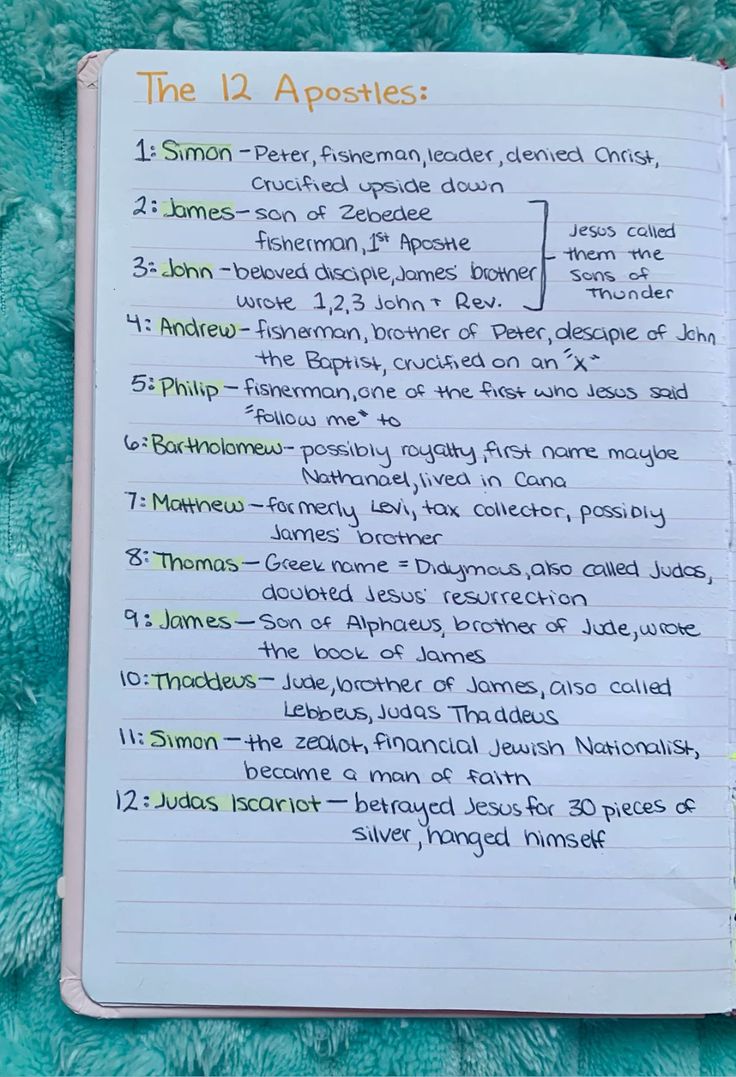 The 12 Apostles:
1: Simon - Peter, fisheman, leader, denied Christ,
crucified upside down
2: James - son of Zebedee
fisherman, 1st Apostle
3: John - beloved disciple, James' brother
wrote 1,2,3 John + Rev.
Jesus called
them the
sons of
Thunder
4: Andrew - fisherman, brother of Peter, desciple of John
the Baptist, crucified on an "x"
5: Philip - fisherman, one of the first who Jesus said
"follow me" to
6: Bartholomew - possibly royalty, first name maybe
Nathanael, lived in Cana
7: Matthew - formerly Levi, tax collector, possibly
James' brother
8: Thomas - Greek name = Didymous, also called Judas,
doubted Jesus' resurrection
9: James - Son of Alphaeus, brother of Jude, wrote
the book of James
10: Thaddeus - Jude, brother of James, also called
Lebbeus, Judas Thaddeus
11: Simon - the zealot, financial Jewish Nationalist,
became a man of faith
12: Judas Iscariot - betrayed Jesus for 30 pieces of
silver, hanged himself